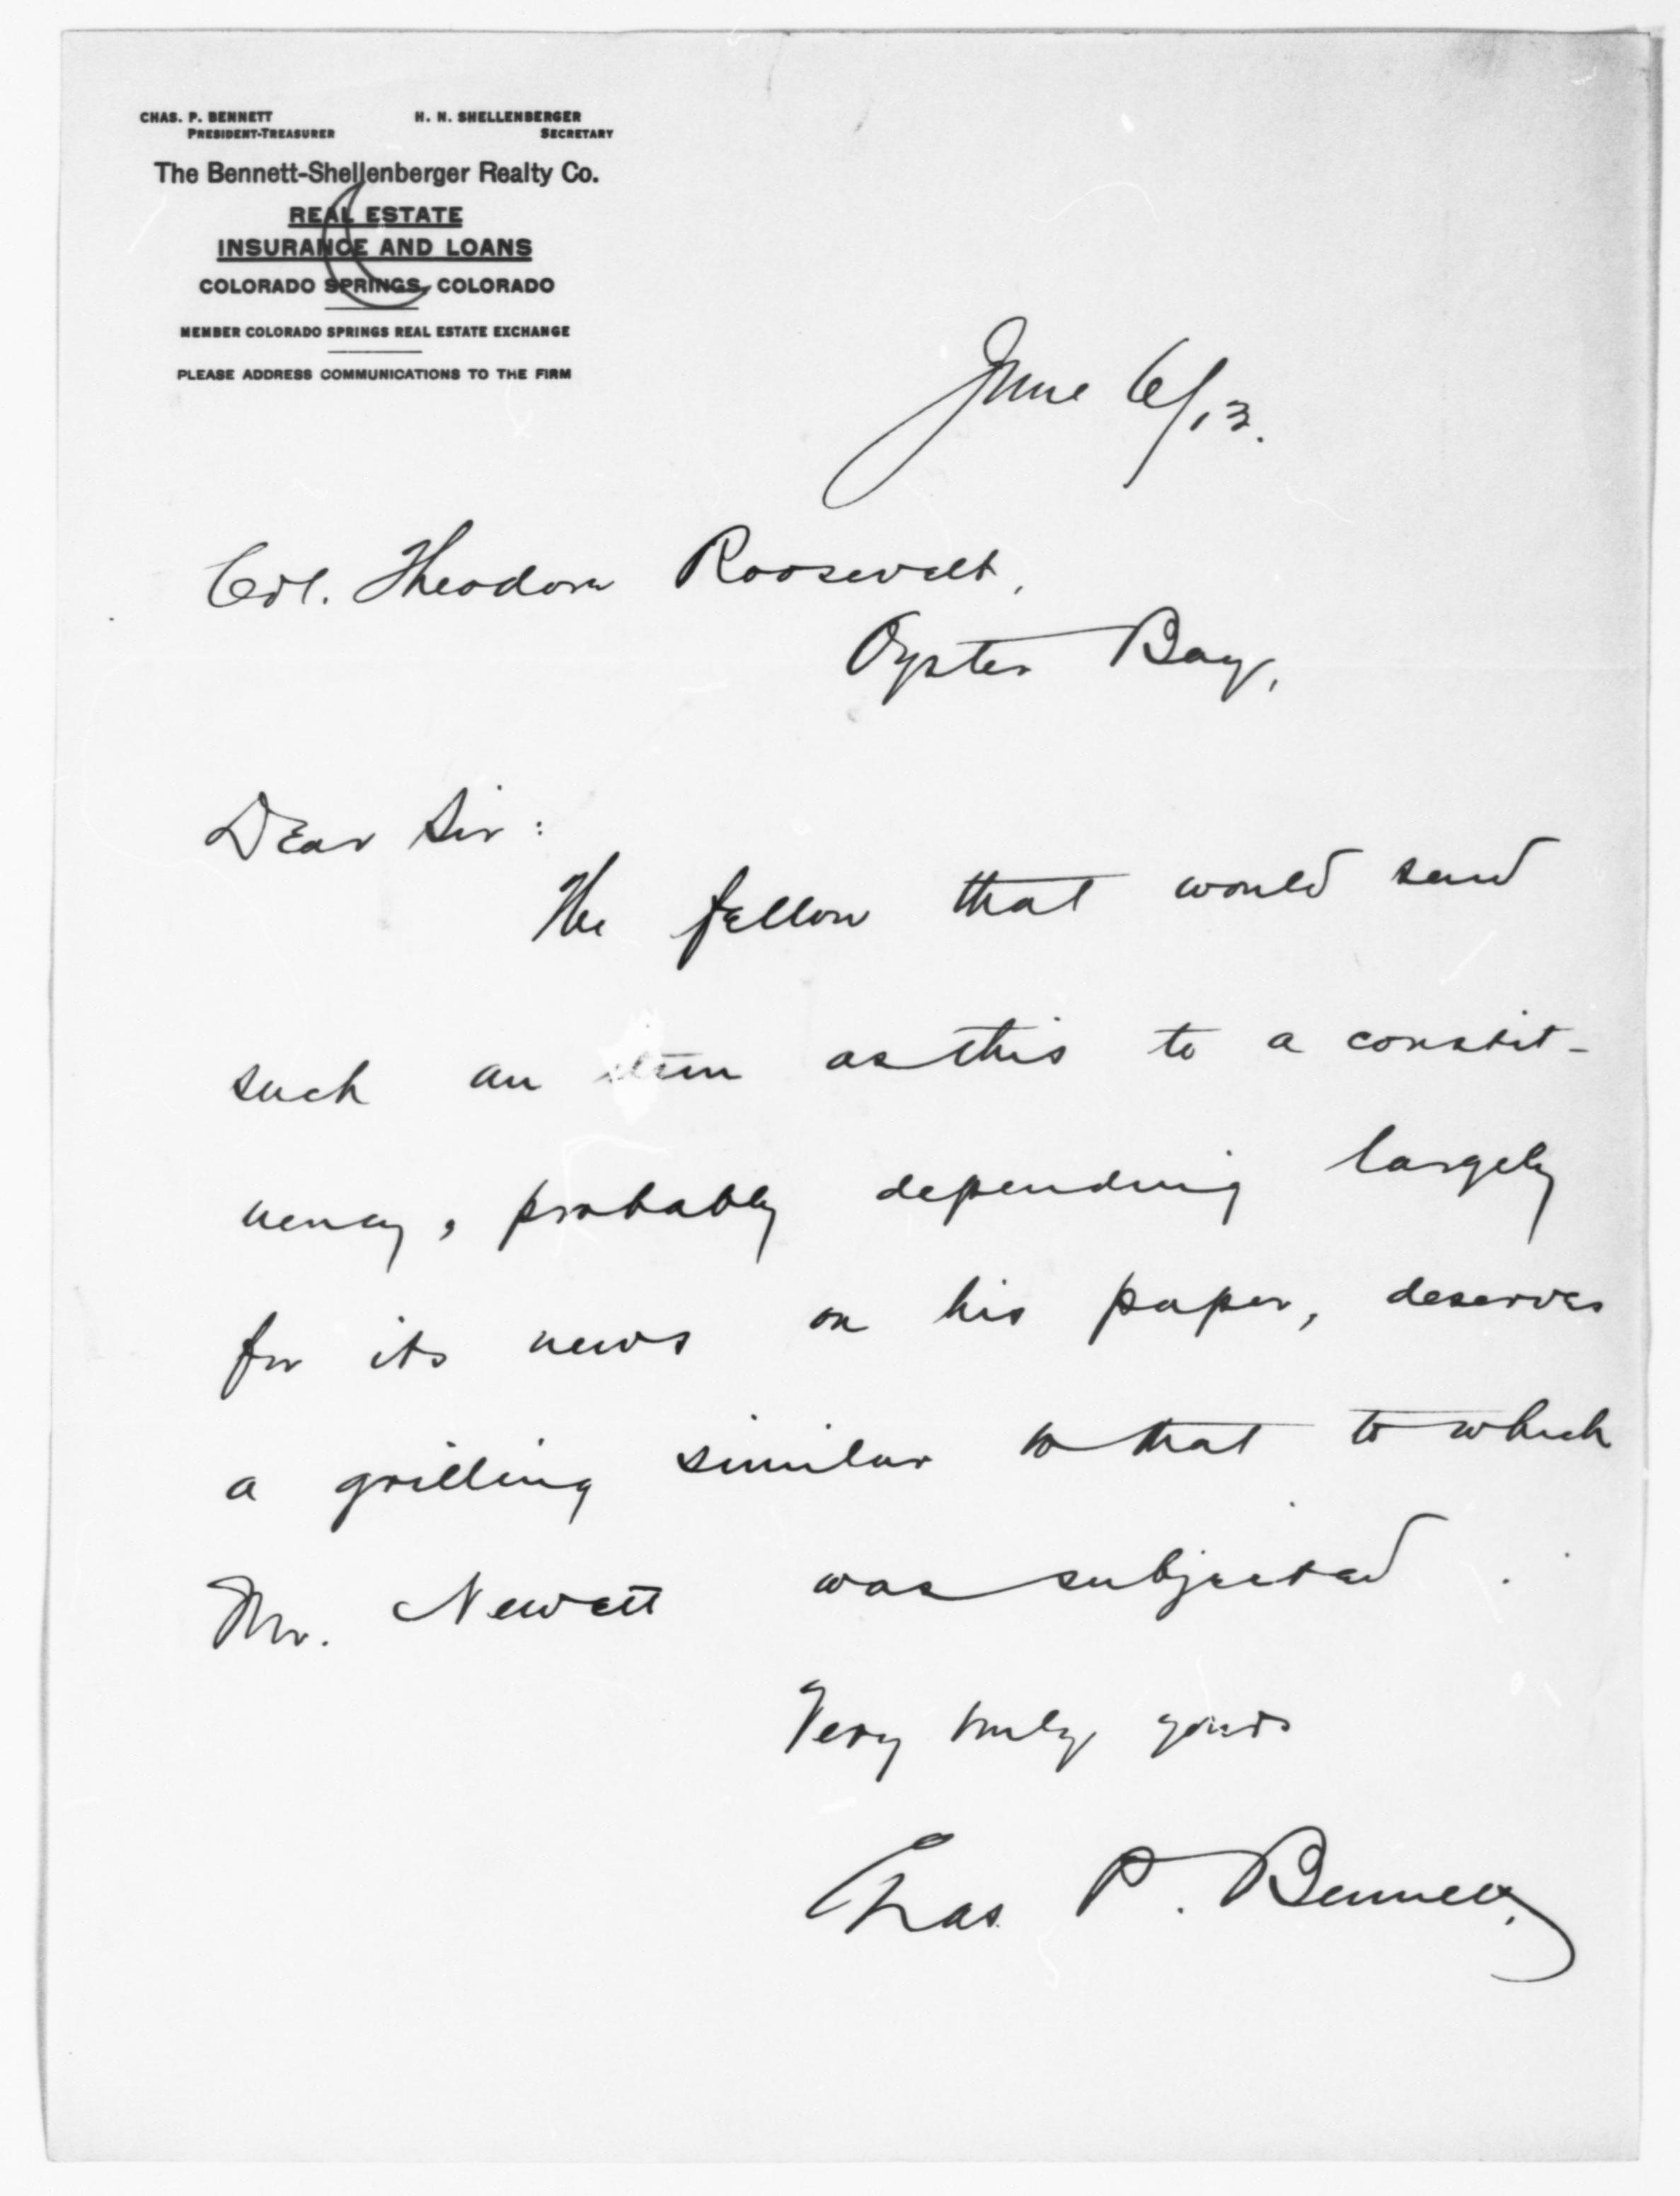 CHAS. P. BENNETT H. N. SHELLENBERGER
PRESIDENT-TREASURER SECRETARY
The Bennett-Shellenberger Realty Co.
REAL ESTATE
INSURANCE AND LOANS
COLORADO SPRINGS, COLORADO
MEMBER COLORADO SPRINGS REAL ESTATE EXCHANGE
PLEASE ADDRESS COMMUNICATIONS TO THE FIRM
June 6/13.
Col. Theodore Roosevelt,
Oyster Bay,
Dear Sir:
The fellow that would send
such an item as this to a constit-
uency, probably depending largely
for its news on his paper, deserves
a grilling similar to that to which
Mr. Newett was subjected.
Very truly yours
Chas. P. Bennett,